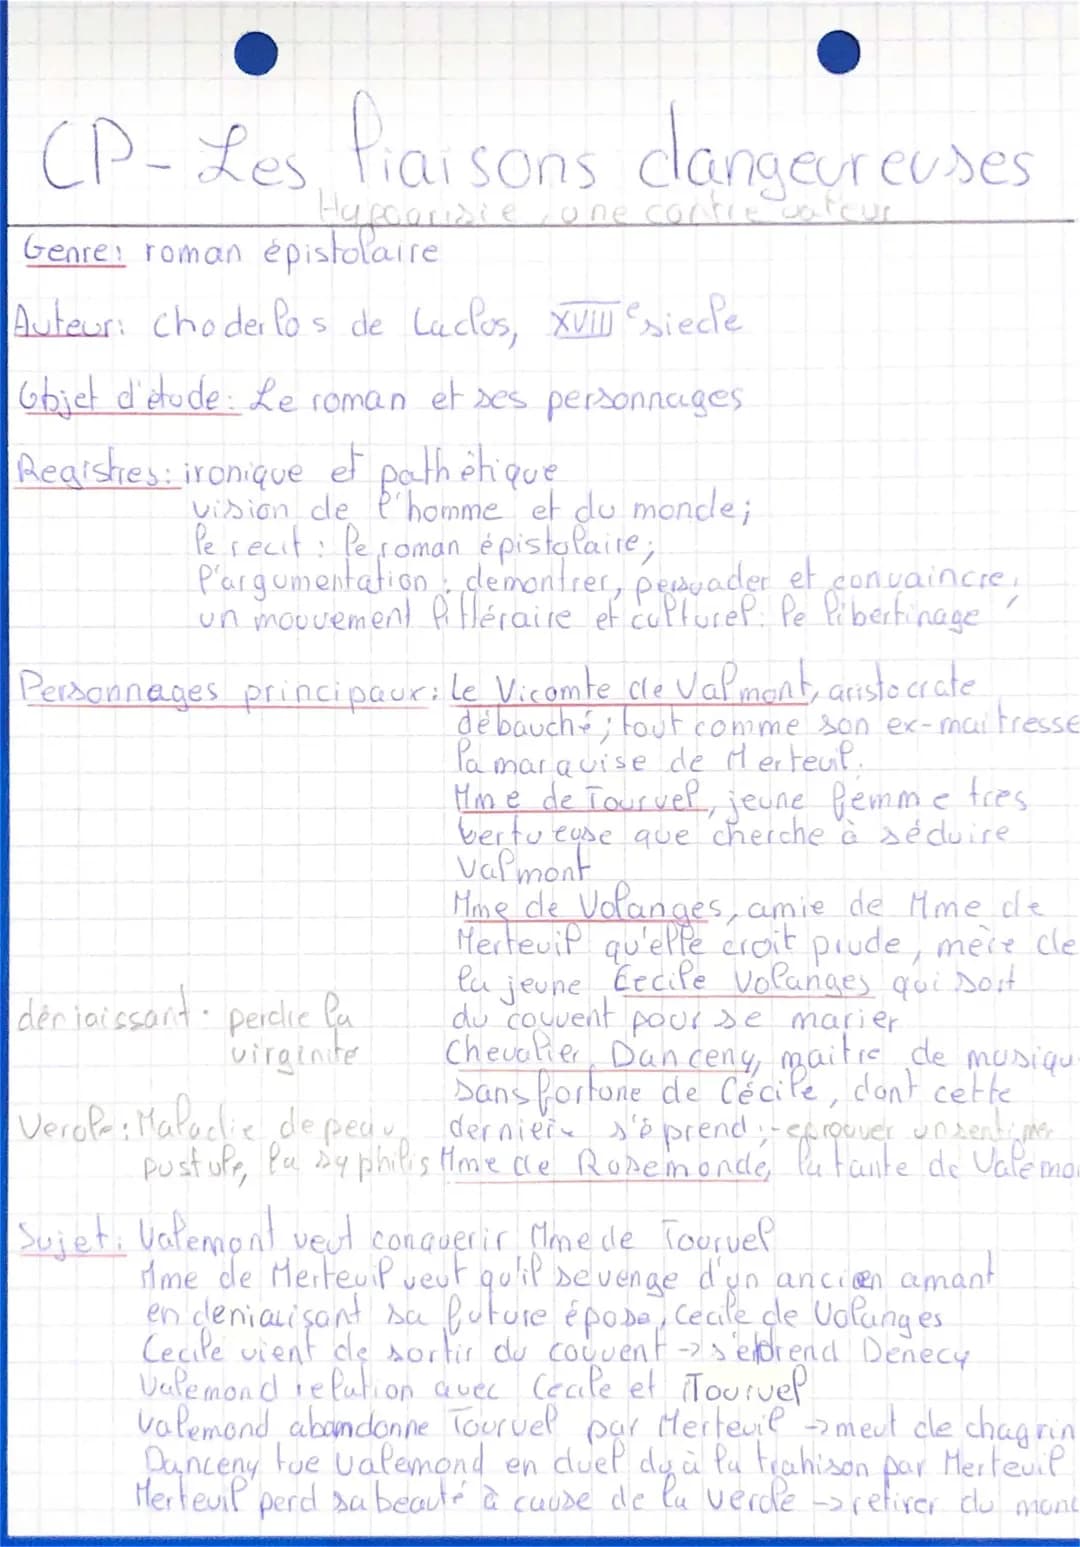 CP- Les liaisons dangeureuses
Hypocrisie, une contre valeur
Genre: roman épistolaire
Auteur: Choderlos de Laclos, XVIIIe siecle
Objet d'étude: Le roman et ses personnages
Registres: ironique et pathétique
vision de l'homme et du monde;
le recit: le roman épistolaire;
l'argumentation: demontrer, persuader et convaincre,
un mouvement littéraire et culturel: le libertinage
Personnages principaux: le Vicomte de Valmont, aristocrate
débauché; tout comme son ex-maitresse
la marquise de Merteuil.
Mme de Tourvel, jeune femme tres
vertueuse que cherche à séduire
Valmont
Mme de Volanges, amie de Mme de
Merteuil qu'elle croit prude, mère de
la jeune Cecile Volanges qui sort
du couvent pour se marier
déniaissant: perdre la
virginité
Chevalier Danceny, maitre de musiqu
sans fortune de Cécile, dont cette
derniere s'éprend; -eprouver un sentimer
Verole: Maladie de peau,
pustule, la syphilis
Mme de Rosemonde, la tante de Valemo
Sujet: Valemont veut conquerir Mme de Tourvel
Mme de Merteuil veut qu'il se venge d'un ancien amant
en deniaisant sa future épose, Cecile de Volanges
Cecile vient de sortir du couvent -> s'eprend Denecy
Valemond relation avec Cecile et Tourvel
Valemond abandonne Tourvel par Merteuil -> meut de chagrin
Danceny tue Valemond en duel du à la trahison par Merteuil
Merteuil perd sa beauté à cause de la verole -> retirer du mond